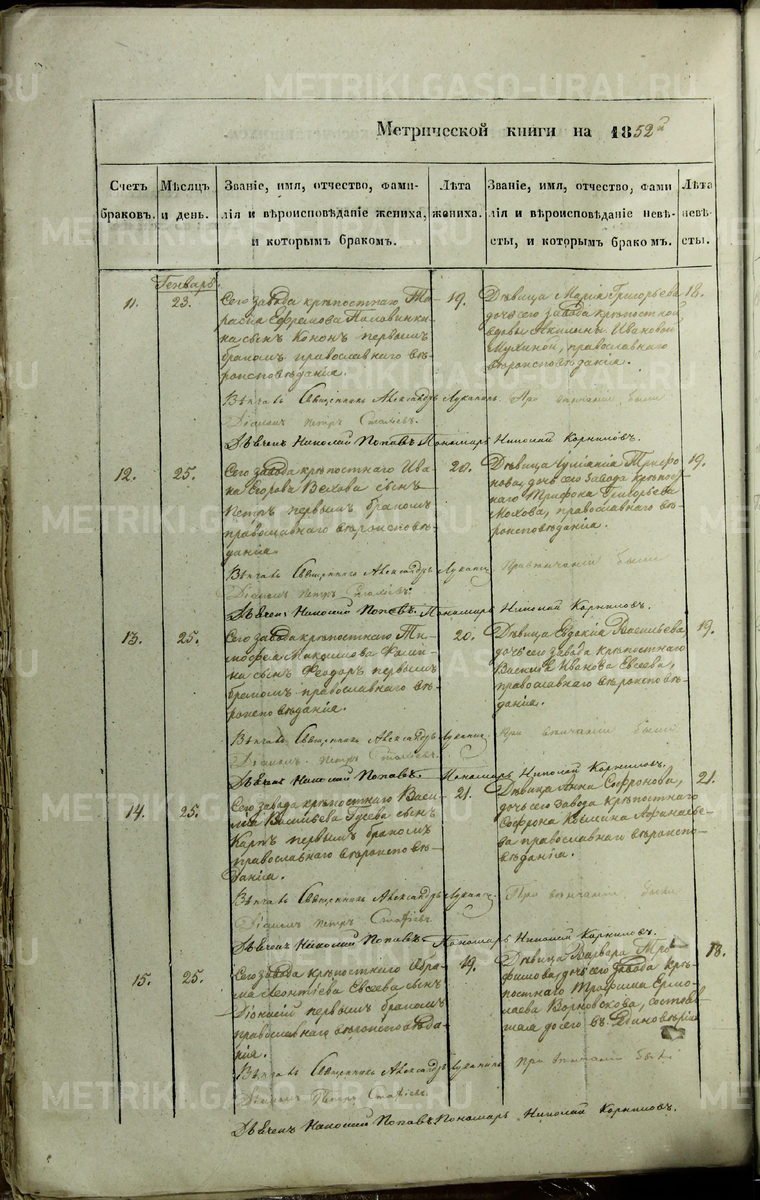 METRIKI.GASO-URAL.RU
Метрической книги на 1852й
Счетъ браковъ.
Мѣсяцъ и день.
Званіе, имя, отчество, фами-
лія и вѣроисповѣданіе жениха,
и которымъ бракомъ.
Лѣта жениха.
Званіе, имя, отчество, фами
лія и вѣроисповѣданіе невѣ-
сты, и которымъ бракомъ.
Лѣта невѣ-
сты.
Генварь
11. 23.
Сего завода крѣпостнаго Та-
расія Ефремова
на сынъ Кононъ первымъ
бракомъ православнаго вѣ-
роисповѣданія.
19.
Дѣвица Марія Григорьева
дочь сего завода крѣпостной
вдовы Акилины Ивановой
Мухиной, православнаго
вѣроисповѣданія.
18.
Вѣнчалъ Священникъ Александръ Луканинъ. При вѣнчаніи были
Діаконъ Петръ
Дьячекъ Николай Поповъ Пономарь Николай Корниловъ.
12. 25.
Сего завода крѣпостнаго Ива-
на Егорова сынъ
Петръ первымъ бракомъ
православнаго вѣроисповѣ-
данія.
20.
Дѣвица Іуліанія Трифо-
нова, дочь сего завода крѣпост-
наго Трифона Григорьева
Мохова, православнаго вѣ-
роисповѣданія.
19.
Вѣнчалъ Священникъ Александръ Луканинъ. При вѣнчаніи были
Діаконъ Петръ
Дьячекъ Николай Поповъ. Пономарь Николай Корниловъ.
13. 25.
Сего завода крѣпостнаго Ти-
мофея
на сынъ Ѳеодоръ первымъ
бракомъ православнаго вѣ-
роисповѣданія.
20.
Дѣвица Евдокія Васильева
дочь сего завода крѣпостнаго
Василія Иванова Евсеева,
православнаго вѣроисповѣ-
данія.
19.
Вѣнчалъ Священникъ Александръ Луканинъ. При вѣнчаніи были
Діаконъ Петръ
Дьячекъ Николай Поповъ. Пономарь Николай Корниловъ.
14. 25.
Сего завода крѣпостнаго Васи-
лія Васильева Гусева сынъ
Карпъ первымъ бракомъ
православнаго вѣроисповѣ-
данія.
21.
Дѣвица Анна Софронова,
дочь сего завода крѣпостнаго
Софрона
ва православнаго вѣроиспо-
вѣданія.
21.
Вѣнчалъ Священникъ Александръ Луканинъ. При вѣнчаніи были
Діаконъ Петръ
Дьячекъ Николай Поповъ Пономарь Николай Корниловъ.
15. 25.
Сего завода крѣпостнаго Абра-
ма Леонтіева Евсеева сынъ
Діонисій первымъ бракомъ
православнаго вѣроисповѣда-
нія.
19.
Дѣвица Варвара Тро-
фимова, дочь сего завода крѣ-
постнаго Трофима Ермо-
лаева
до сего въ Единовѣріи
18.
Вѣнчалъ Священникъ Александръ Луканинъ При вѣнчаніи были
Діаконъ Петръ
Дьячекъ Николай Поповъ Пономарь Николай Корниловъ.